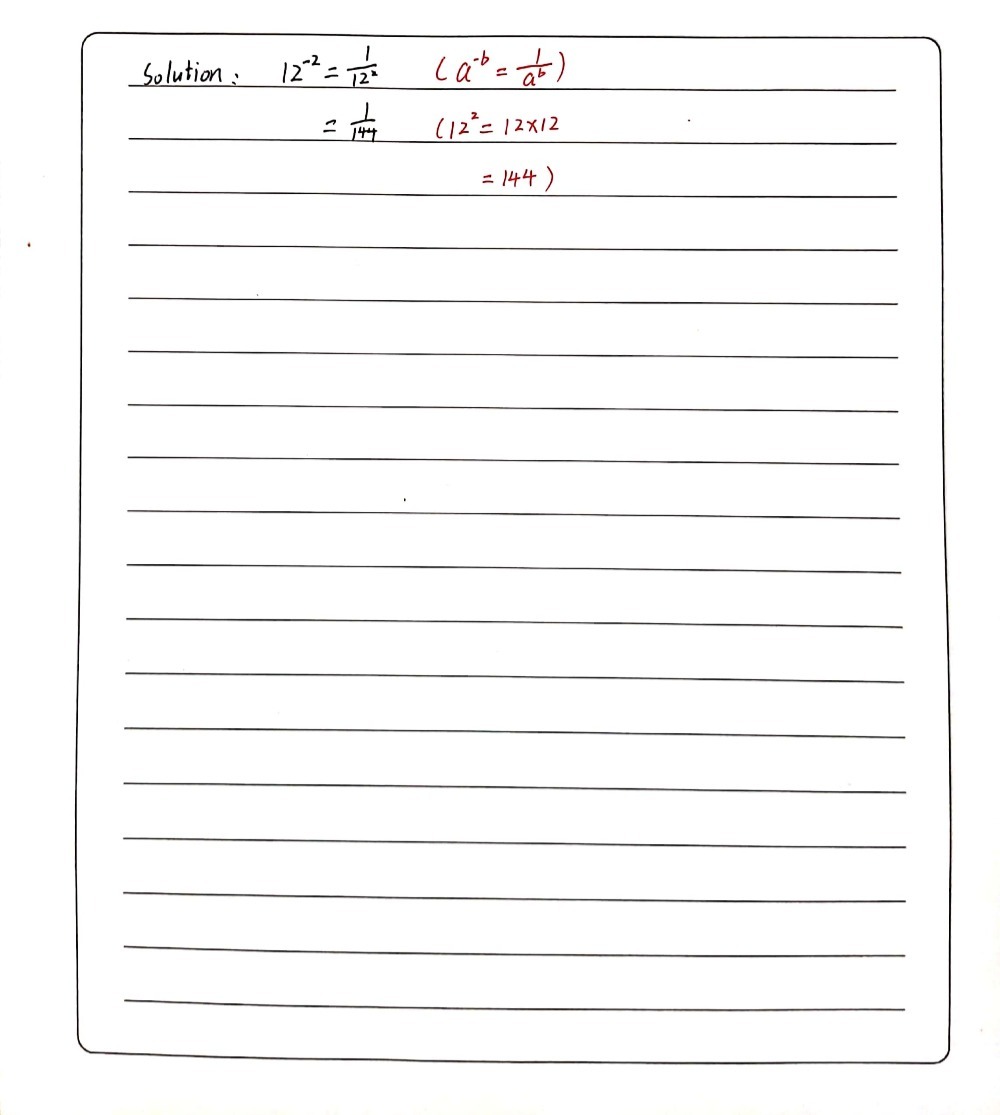 Solution: 12⁻² = 1/12² (a⁻ᵇ = 1/aᵇ)
= 1/144 (12² = 12×12
= 144)